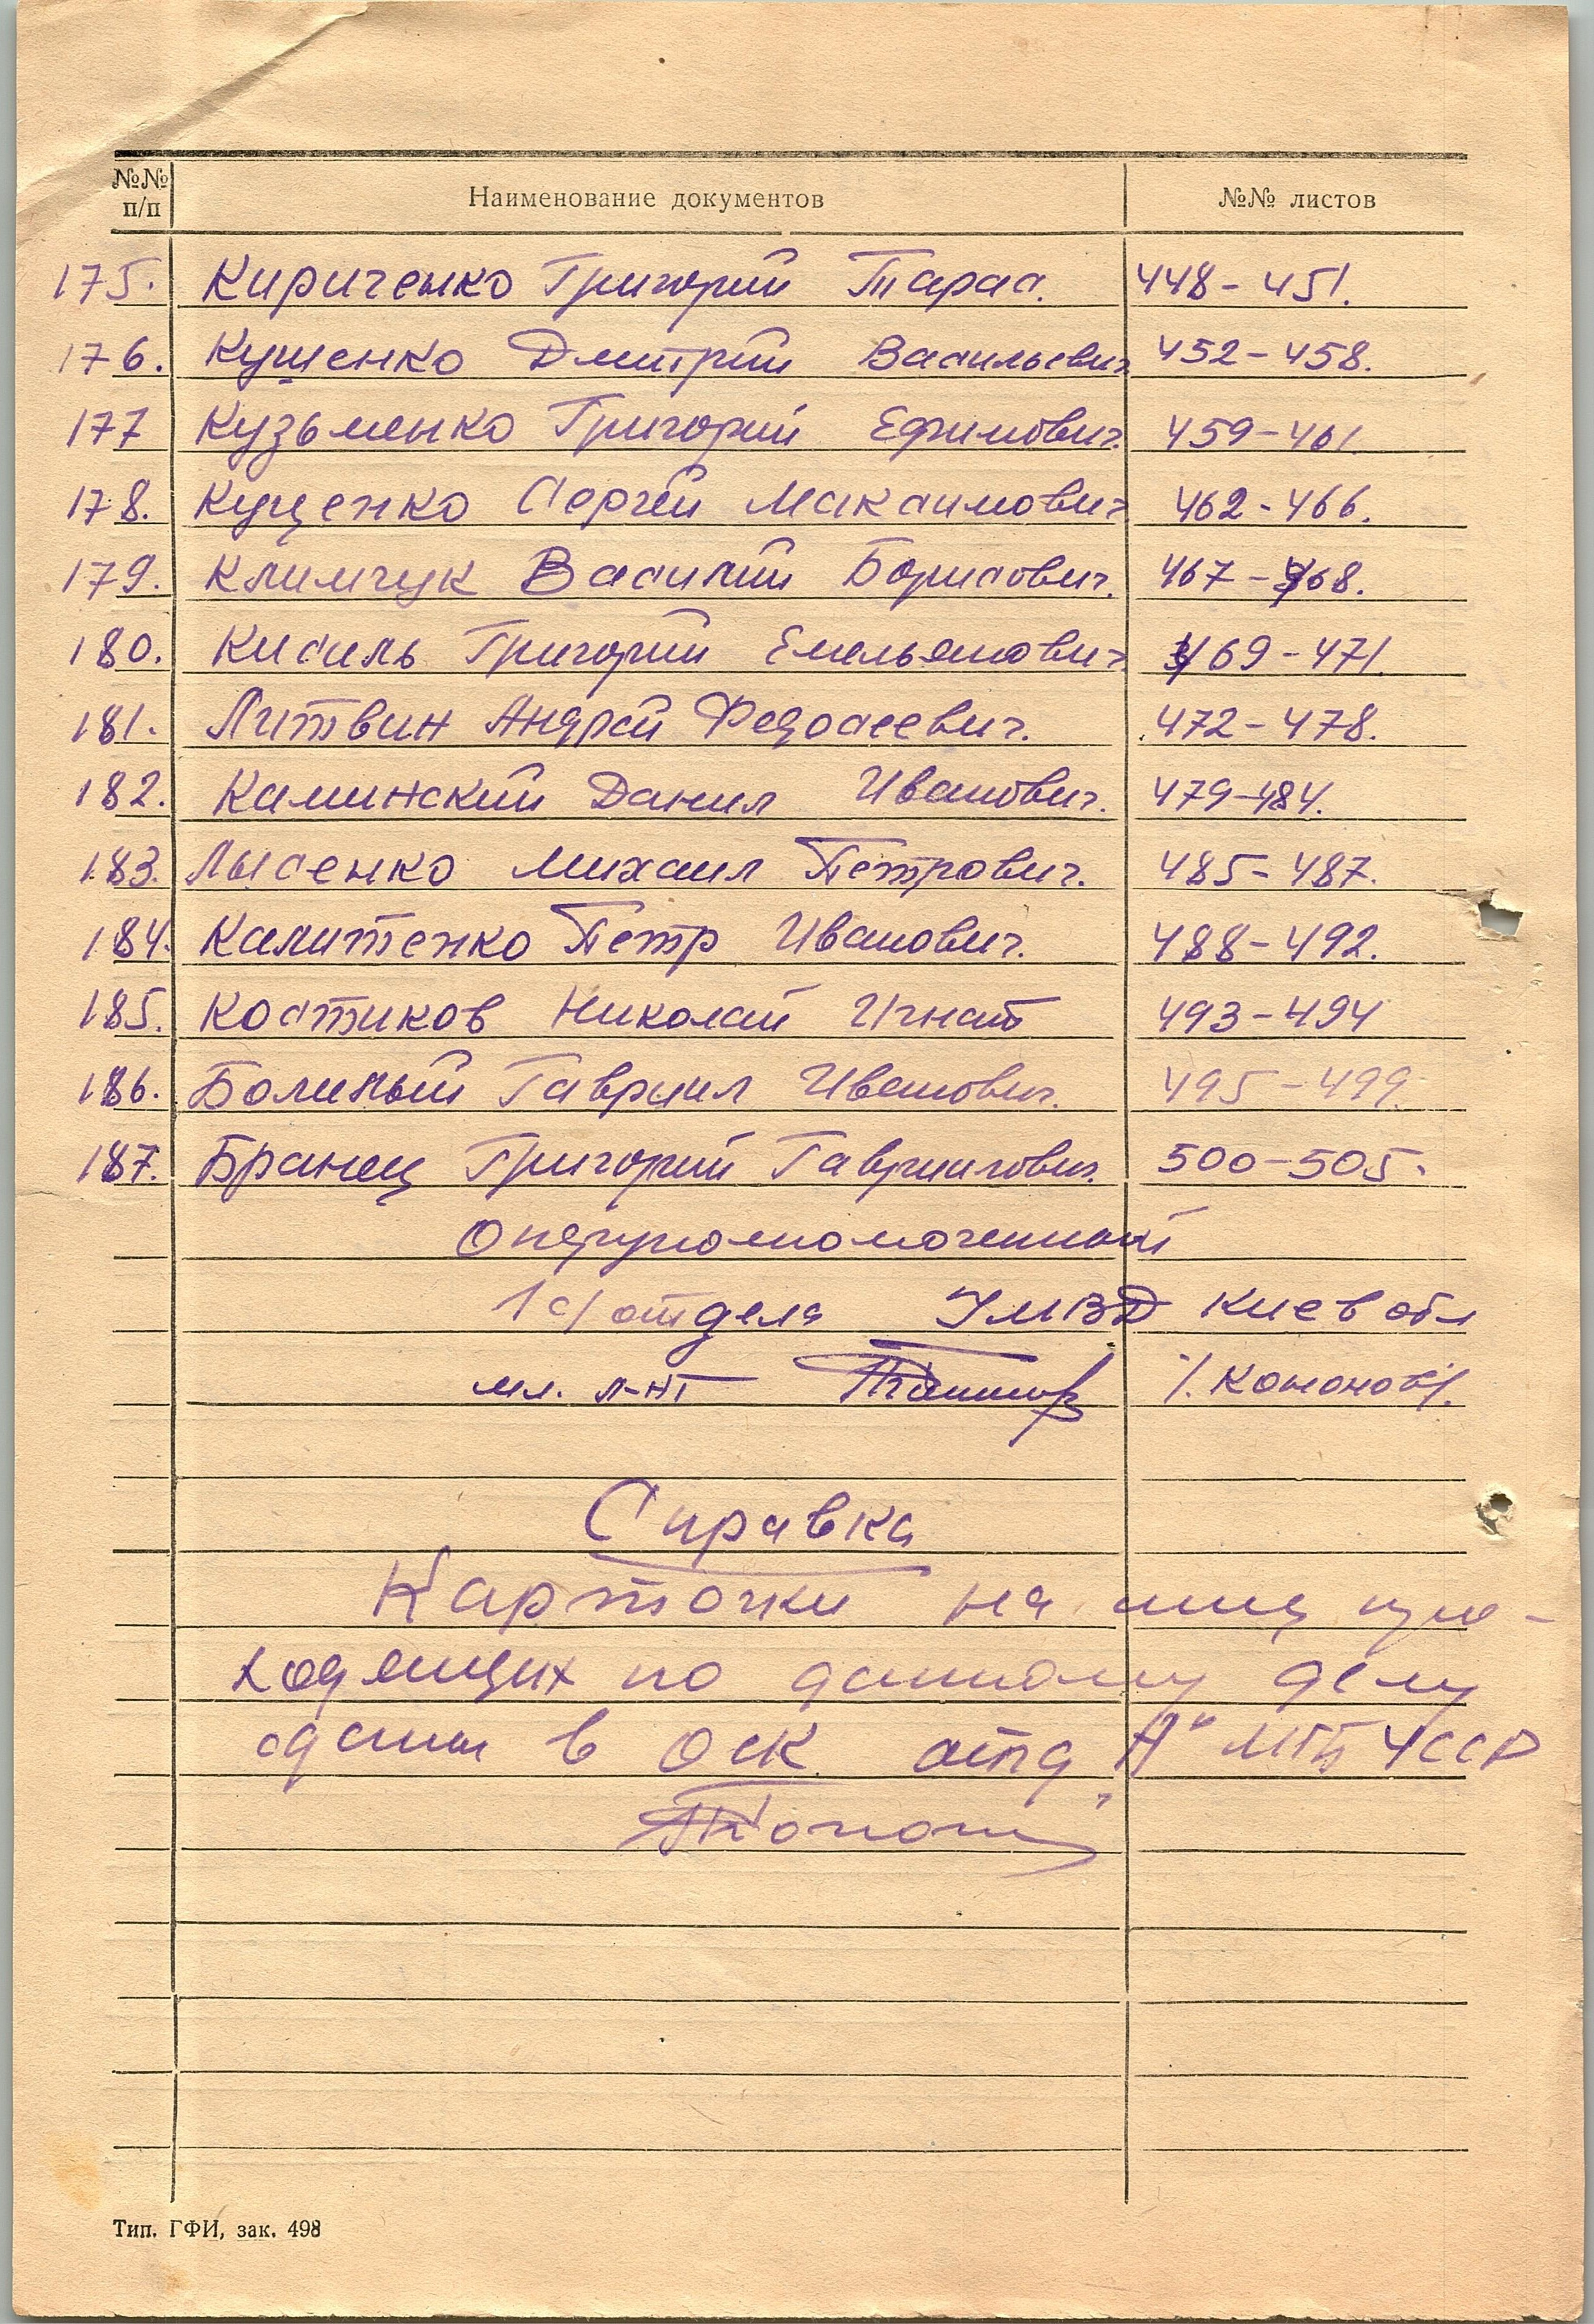 №№ п/п Наименование документов №№ листов
175. Кириченко Григорий Тарас. 448-451.
176. Кушенко Дмитрий Васильевич 452-458.
177 Кузьменко Григорий Ефимович. 459-461.
178. Куценко Сергей Максимович 462-466.
179. Климчук Василий Борисович. 467-468.
180. Кисиль Григорий Емельянович. 469-471.
181. Литвин Андрей Федосеевич. 472-478.
182. Каминский Данил Иванович. 479-484.
183. Лысенко Михаил Петрович. 485-487.
184. Калитенко Петр Иванович. 488-492.
185. Костиков Николай Игнат 493-494
186. Иванович. Гавриил 495-499.
187. Бранец Григорий Гавриилович. 500-505.
Оперуполномоченный
1 с/отдела УМВД Киев обл
мл. л-нт /. Кононов/.
Справка
Карточки на лиц про-
ходящих по данному делу
сданы в ОСК отд "А" МГБ УССР
Тип. ГФИ, зак. 498